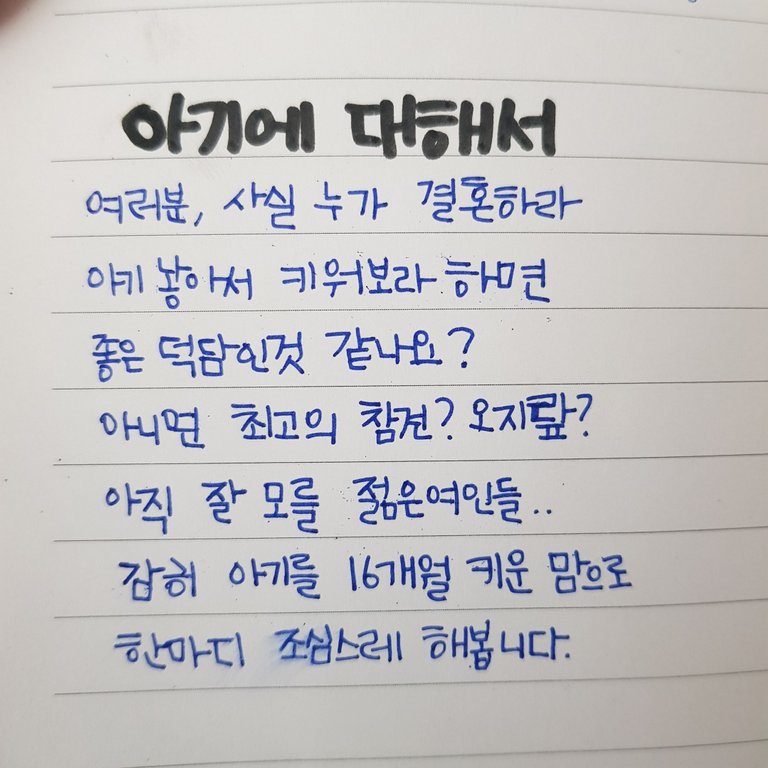 아기에 대해서
여러분, 사실 누가 결혼하라
아기 놓아서 키워보라 하면
좋은 덕담인것 같나요?
아니면 최고의 참견? 오지랖?
아직 잘 모를 젊은여인들..
감히 아기를 16개월 키운 맘으로
한마디 조심스레 해봅니다.